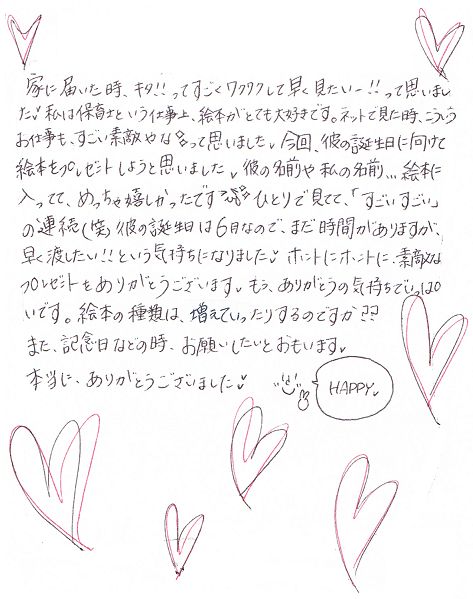 家に届いた時、キタ!!ってすごくワクワクして早く見たいー!!って思いまし
た♥私は保育士という仕事上、絵本がとても大好きです。ネットで見た時、こういう
お仕事も、すごい素敵やなぁって思いました♥今回、彼の誕生日に向けて
絵本をプレゼントしようと思いました♥彼の名前や私の名前…絵本に
入ってて、めっちゃ嬉しかったです ひとりで見てて、「すごいすごい」
の連続(笑)彼の誕生日は6月なので、まだ時間がありますが、
早く渡したい!!という気持ちになりました♥ホントにホントに、素敵な
プレゼントをありがとうございます♥もう、ありがとうの気持ちでいっぱ
いです。絵本の種類は、増えていったりするのですか??
また、記念日などの時、お願いしたいとおもいます♥
本当に、ありがとうございました♥
HAPPY♥